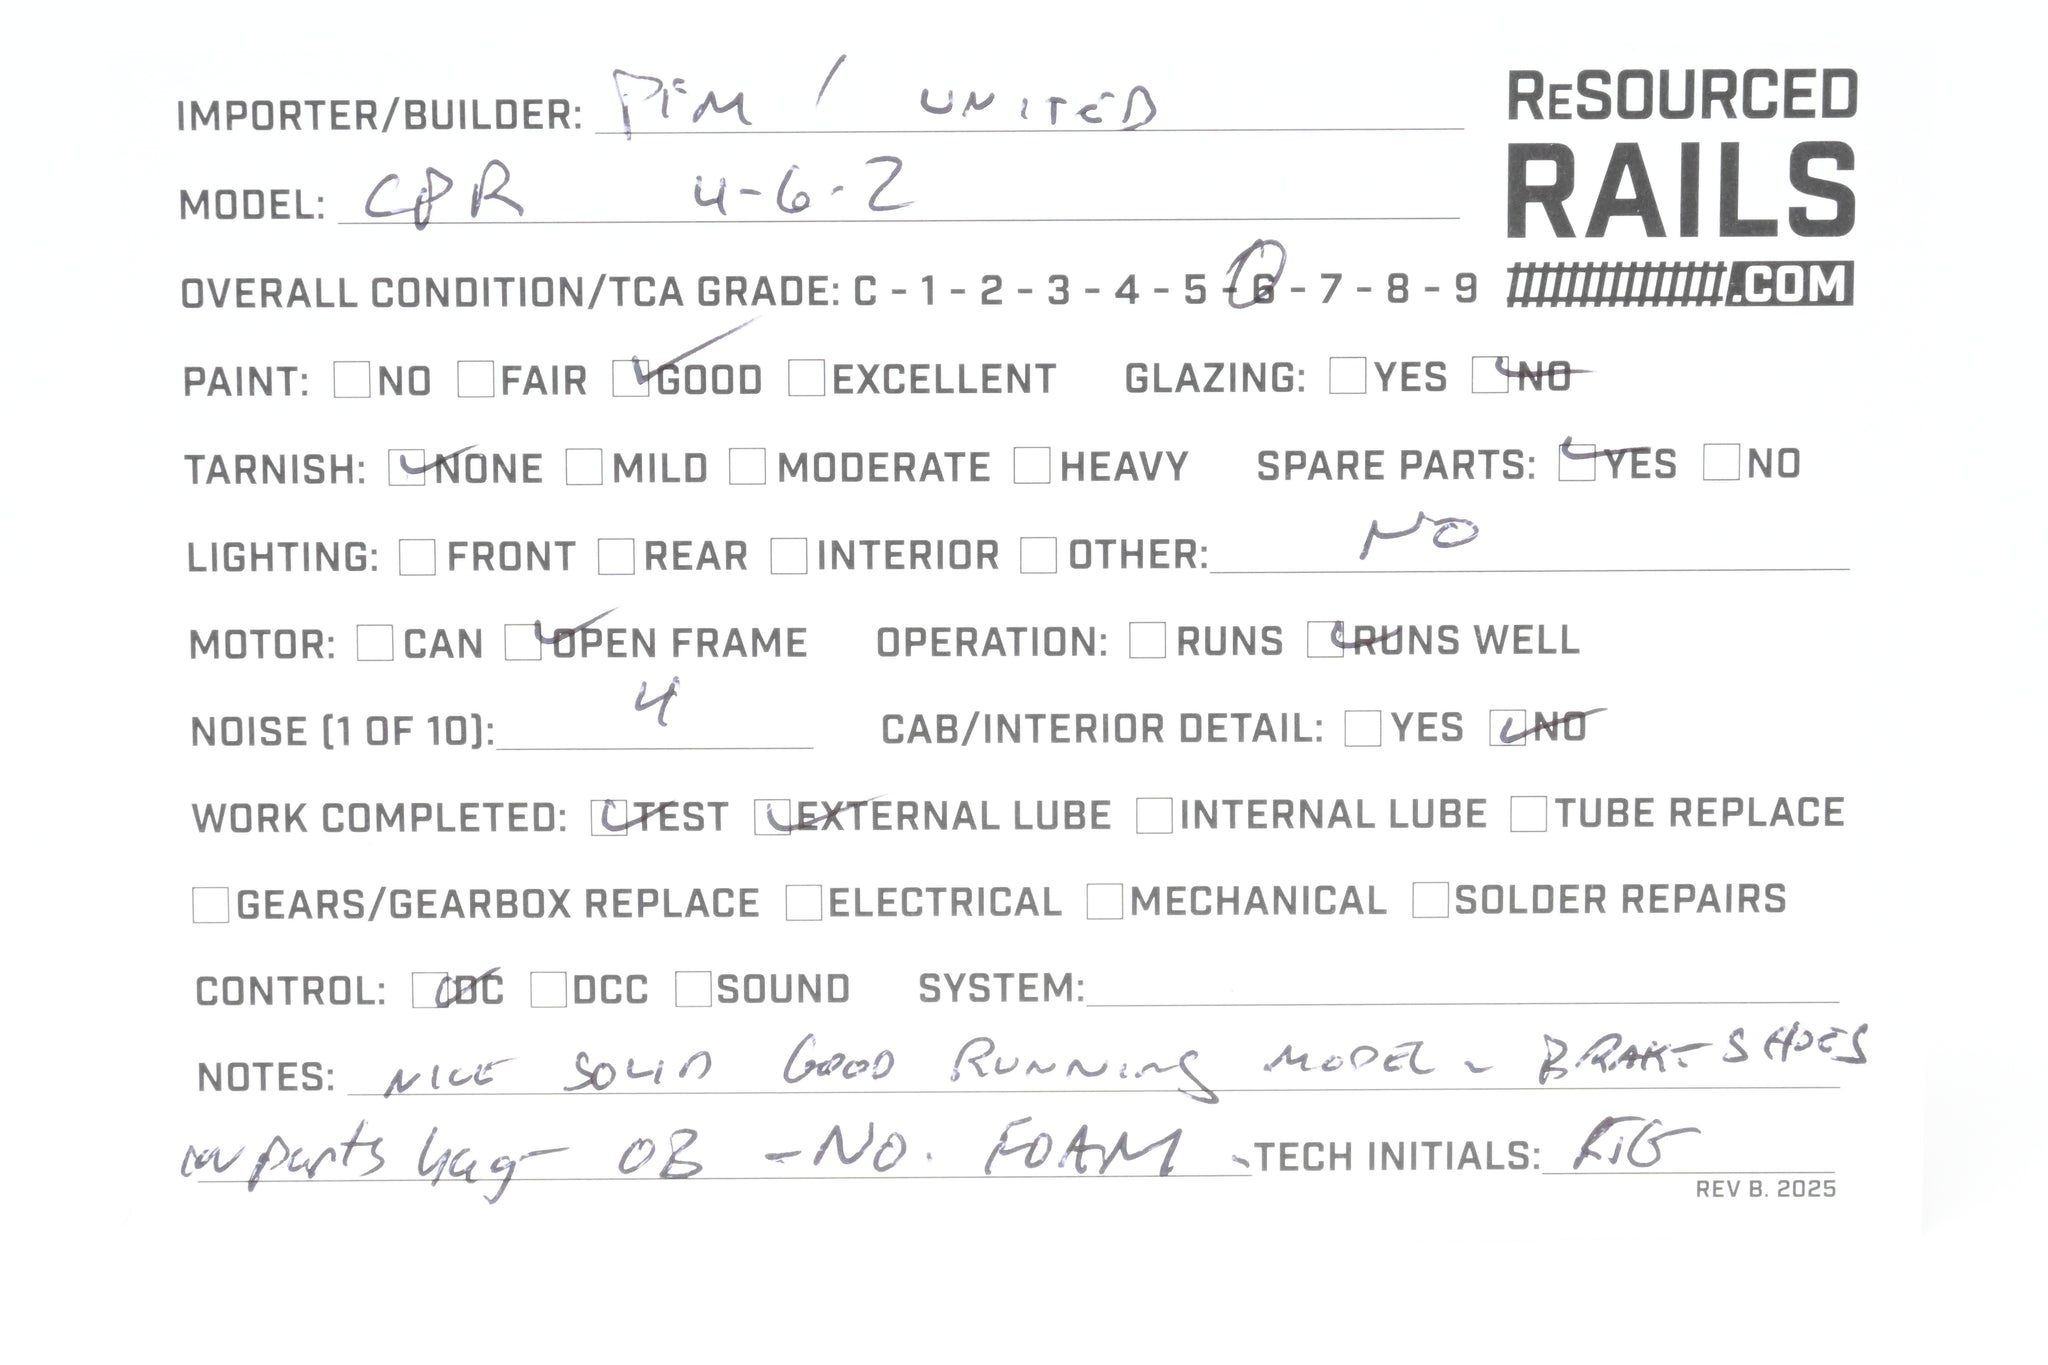 IMPORTER/BUILDER: PFM / UNITED
RESOURCED
RAILS
.COM
MODEL: CPR 4-6-2
OVERALL CONDITION/TCA GRADE: C - 1 - 2 - 3 - 4 - 5 - 6 - 7 - 8 - 9
PAINT: NO FAIR GOOD EXCELLENT GLAZING: YES NO
TARNISH: NONE MILD MODERATE HEAVY SPARE PARTS: YES NO
LIGHTING: FRONT REAR INTERIOR OTHER: NO
MOTOR: CAN OPEN FRAME OPERATION: RUNS RUNS WELL
NOISE (1 OF 10): 4 CAB/INTERIOR DETAIL: YES NO
WORK COMPLETED: TEST EXTERNAL LUBE INTERNAL LUBE TUBE REPLACE
GEARS/GEARBOX REPLACE ELECTRICAL MECHANICAL SOLDER REPAIRS
CONTROL: DC DCC SOUND SYSTEM:
NOTES: NICE SOLID GOOD RUNNING MODEL - BRAKE SHOES
parts bag - OB - NO FOAM - TECH INITIALS:
REV B. 2025